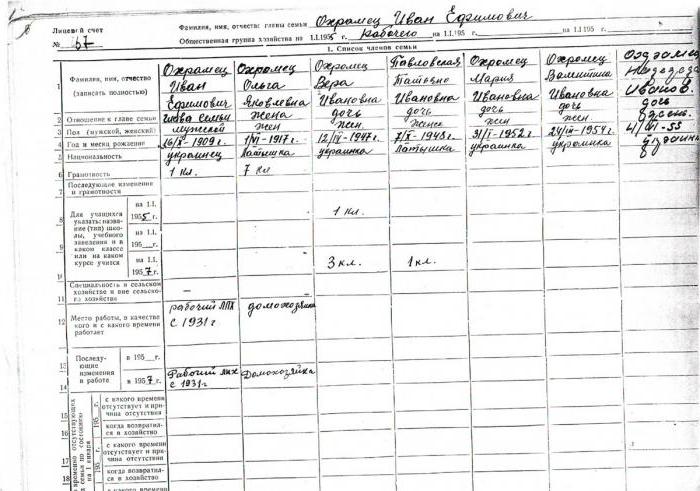 Лицевой счет
№ 67
Фамилия, имя, отчество главы семьи Охрамец Иван Ефимович
Общественная группа хозяйства на 1.I.1955 г. рабочего на 1.I.195 г. на 1.I.195 г.
1. Список членов семьи
1 Фамилия, имя, отчество (записать полностью) Охрамец Иван Ефимович Охрамец Ольга Яковлевна Охрамец Вера Ивановна Павловская Ивановна Охрамец Мария Ивановна Охрамец Ивановна
2 Отношение к главе семьи глава семьи жена дочь дочь дочь дочь дочь
3 Пол (мужской, женский) мужской жен жен. женск жен жен
4 Год и месяц рождения 1909 г. 1917 г. 1947 г. 1948 г. 1952 г. 1954 г.
5 Национальность украинец латышка украинка латышка украинка украинка
6 Грамотность 1 кл. 7 кл
7 Последующие изменения в грамотности
8 Для учащихся указать: название (тип) школы, учебного заведения и в каком классе или на каком курсе учится
на 1.I. 1955 г. 1 кл.
9 на 1.I. 195 г.
10 на 1.I. 1957 г. 3 кл. 1 кл.
11 Специальность в сельском хозяйстве и вне сельского хозяйства – –
12 Место работы, в качестве кого и с какого времени работает рабочий ЛПХ с 1931 г домохозяйка
13 Последующие изменения в работе в 195 г.
14 в 1957 г. Рабочий лпх с 1931 г Домохозяйка
15 с какого времени отсутствует и причина отсутствия
16 когда возвратился в хозяйство
17 с какого времени отсутствует и причина отсутствия
18 когда возвратился в хозяйство
с какого времени